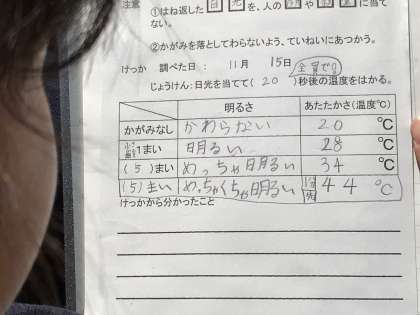 注意 ①はね返した 日 光 を、人の や に当て
ない。
②かがみを落としてわらないよう、ていねいにあつかう。
けっか 調べた日： 11月 15日 全員で
じょうけん：日光を当てて（20）秒後の温度をはかる。
明るさ あたたかさ（温度℃）
かがみなし かわらない 20 ℃
1まい 明るい 28 ℃
（5）まい めっちゃ明るい 34 ℃
（5）まい めっちゃくちゃ明るい 44 ℃
けっかから分かったこと